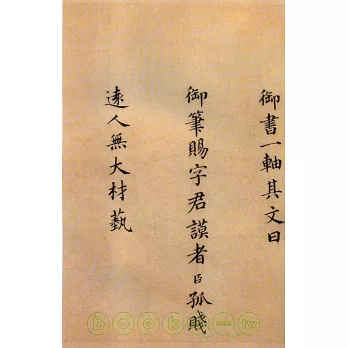 御書一軸其文曰
御筆賜字君謨者臣孤賤
遠人無大材藝
books.com.tw